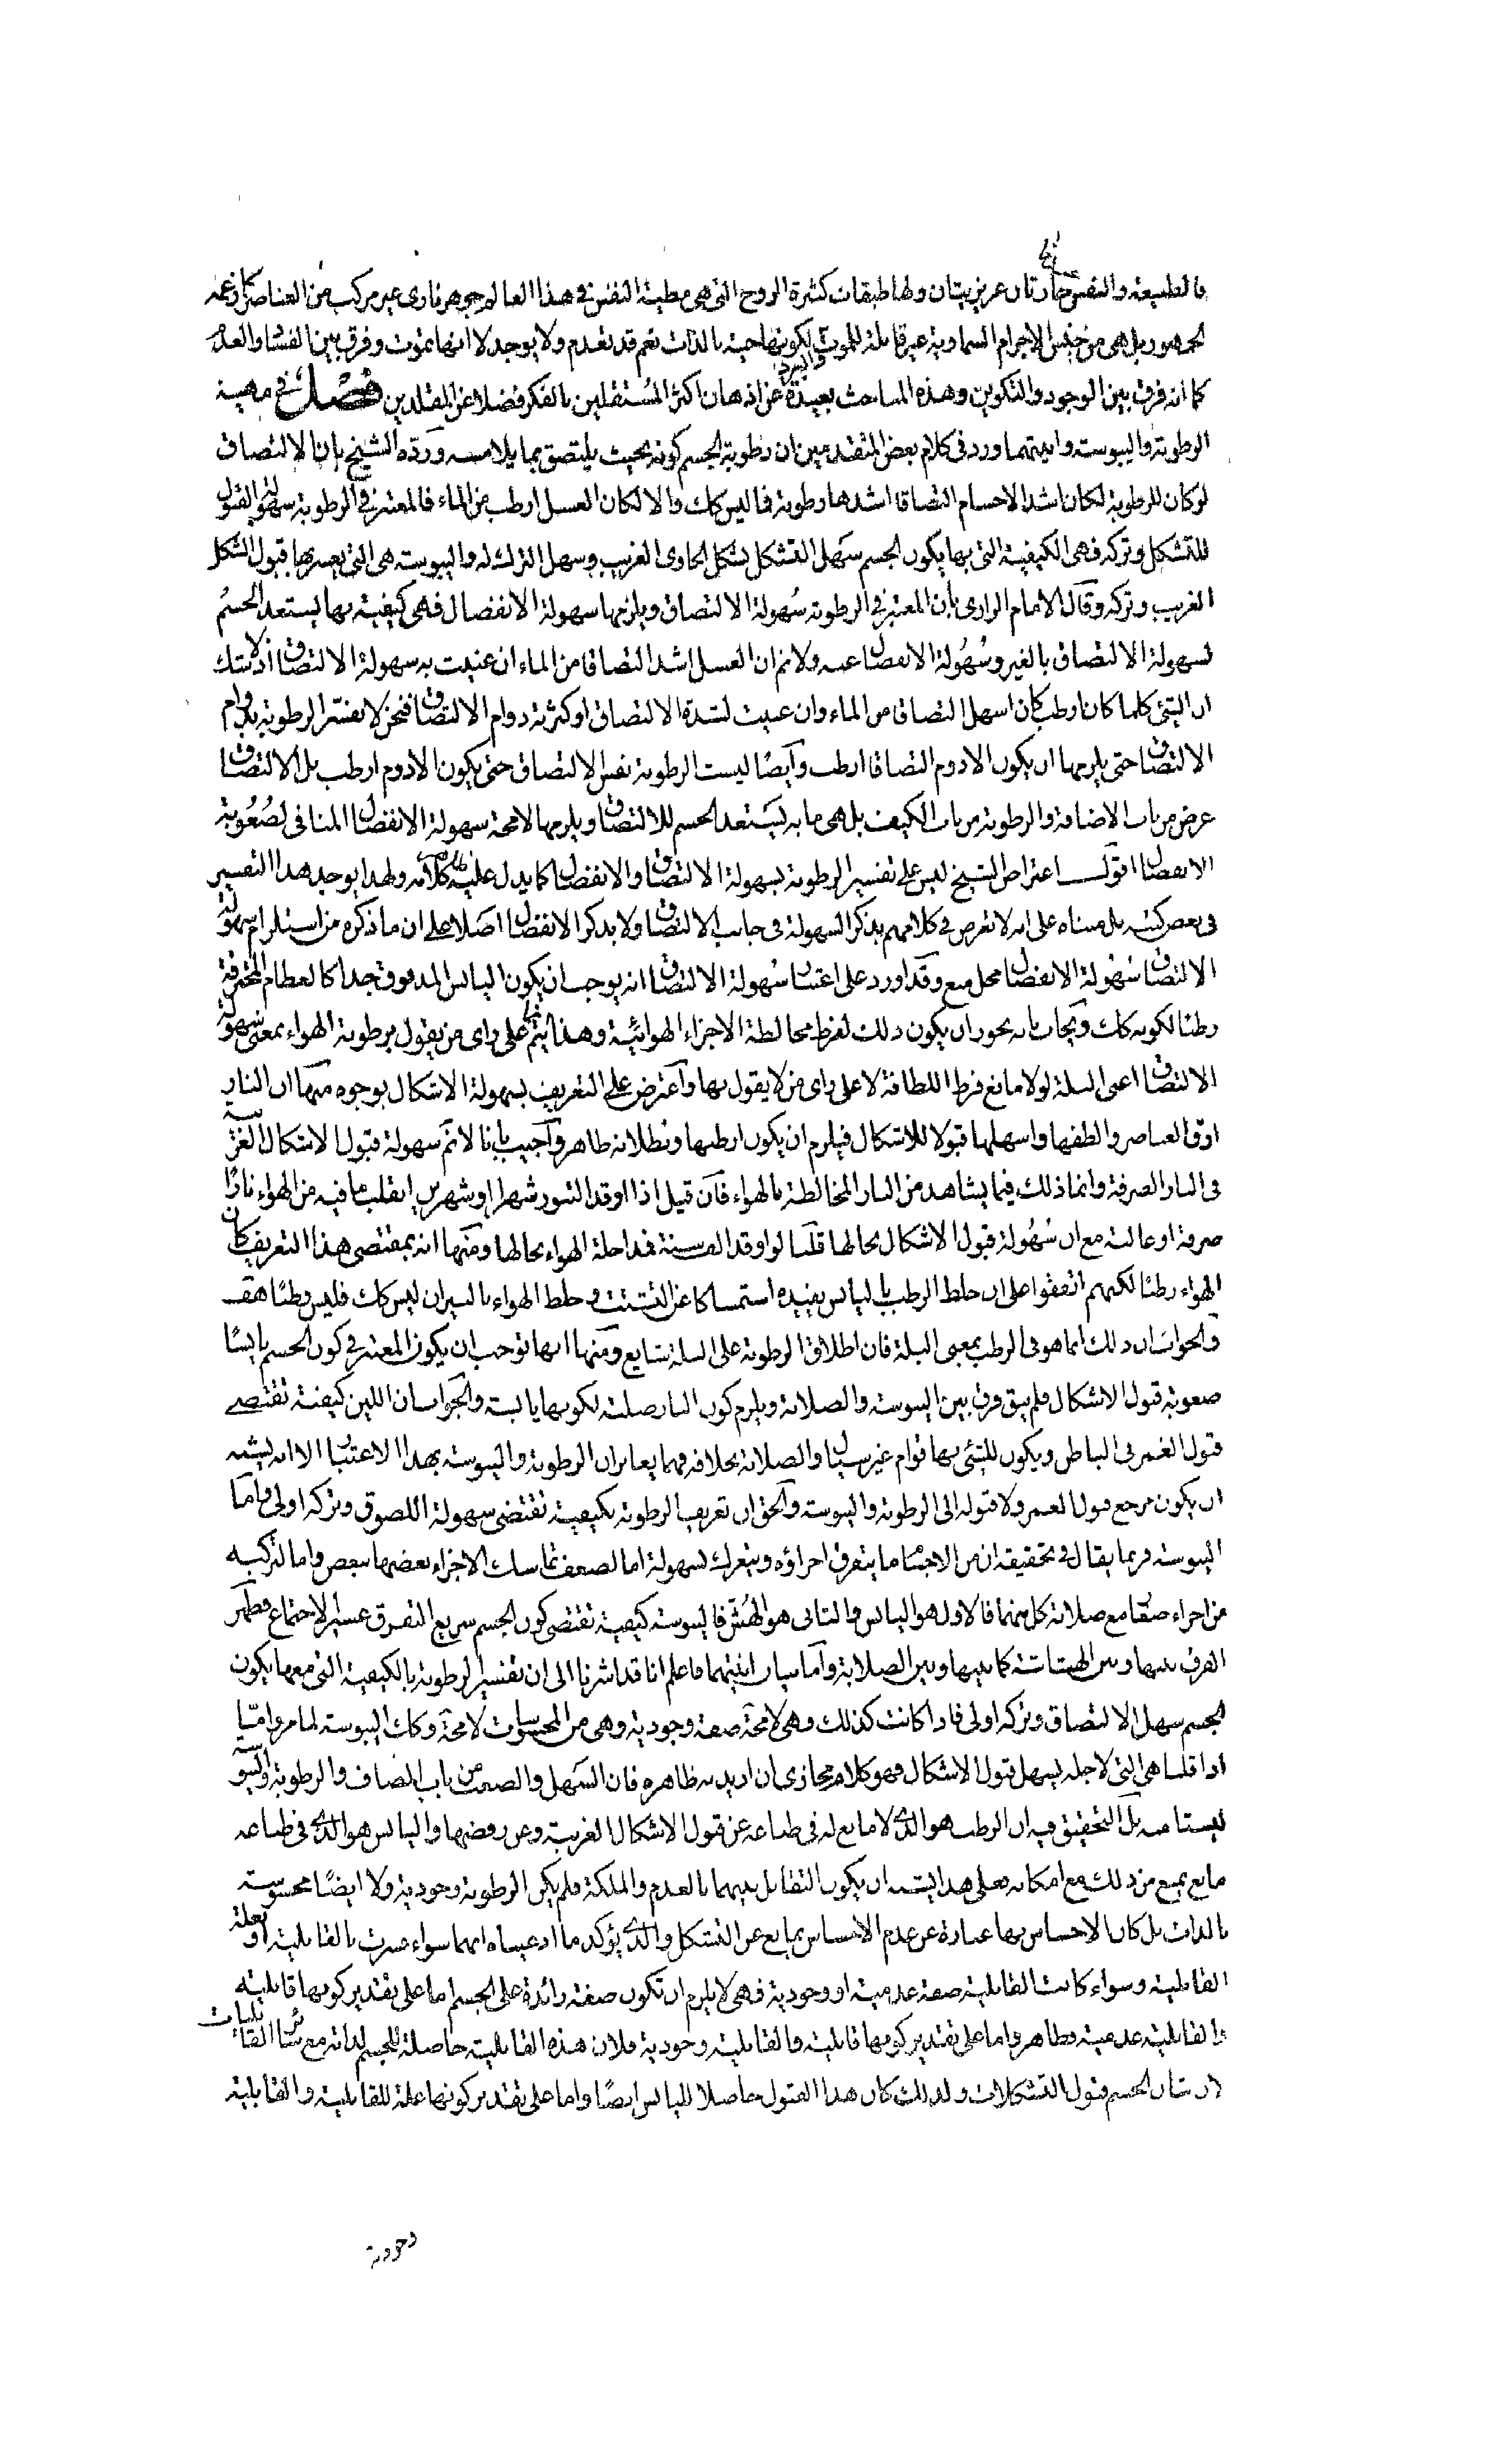 فالطبيعة والنفس حارتان غريزيتان ولها طبقات كثيرة الروح التي هي مطية النفس في هذا العالم جوهر ناري غير مركب من العناصر كما زعمه
الجمهور بل هي من جنس الاجرام السماوية غير قابلة للموت لكونها حية بالذات نعم قد تعدم ولا يوجد لا انها تموت وفرق بين الفساد والعدم
كما انه فرق بين الوجود والتكوين وهذه المباحث بعيدة عن اذهان اكثر المستقلين بالفكر فضلا عن المقلدين فصل في مهية
الرطوبة واليبوسة وانيتهما ورد في كلام بعض المتقدمين ان رطوبة الجسم كونه بحيث يلتصق بما يلامسه ورده الشيخ بان الالتصاق
لو كان للرطوبة لكان اشد الاجسام التصاقا اشدها رطوبة فاليس كك والا لكان العسل ارطب من الماء فالمعتبر في الرطوبة سهولة القبول
للتشكل وتركه فهي الكيفية التي بها يكون الجسم سهل التشكل بشكل الحاوي الغريب وسهل الترك له واليبوسة هي التي يعسر بها قبول الشكل
الغريب وتركه وقال الامام الرازي بأن المعتبر في الرطوبة سهولة الالتصاق ويلزمها سهولة الانفصال فهي كيفية بها يستعد الجسم
لسهولة الالتصاق بالغير وسهولة الانفصال عنه ولانم ان العسل اشد التصاقا من الماء ان عنيت به سهولة الالتصاق اذ لا شك
ان الشئ كلما كان ارطب كان اسهل التصاقا من الماء وان عنيت لشدة الالتصاق او كثرته دوام الالتصاق فنحن لا نفسر الرطوبة بدوام
الالتصاق حتى يلزمها ان يكون الادوم التصاقا ارطب وايضا ليست الرطوبة نفس الالتصاق حتى يكون الادوم ارطب بل الالتصاق
عرض من باب الاضافة والرطوبة من باب الكيف بل هي ما به يستعد الجسم للالتصاق ويلزمها لامحة سهولة الانفصال المنافي لصعوبة
الانفصال اقول اعتراض الشيخ ليس على تفسير الرطوبة بسهولة الالتصاق والانفصال كما يدل عليه كلامه ولهذا يوجد هذا التفسير
في بعض كتبه بل مبناه على انه لا تعرض في كلامهم بذكر السهولة في جانب الالتصاق ولا بذكر الانفصال اصلا على ان ما ذكره من استلزام سهولة
الالتصاق سهولة الانفصال محل منع وقد اورد على اعتبار سهولة الالتصاق انه يوجب ان يكون اليابس المدقوق جدا كالعظام المحترقة
رطبا لكونه كك ويجاب بانه يجوز ان يكون ذلك لفرط مخالطة الاجزاء الهوائية وهذا يتم على راى من يقول برطوبة الهواء بمعنى سهولة
الالتصاق اعني البلة لولا مانع فرط اللطافة لا على راى من لا يقول بها واعترض على التعريف بسهولة الاشكال بوجوه منها ان النار
ارق العناصر والطفها واسهلها قبولا للاشكال فيلزم ان يكون ارطبها وبطلانه ظاهر واجيب بانا لانم سهولة قبول الاشكال الغريبة
في النار الصرفة وانما ذلك فيما يشاهد من النار المخالطة بالهواء فان قيل اذا اوقد التنور شهرا او شهرين انقلب ما فيه من الهواء نارا
صرفة او غالبة مع ان سهولة قبول الاشكال بحالها قلنا لو اوقد الف سنة فمداخلة الهواء بحالها ومنها انه بمقتضى هذا التعريف كان
الهواء رطبا لكنهم اتفقوا على ان خلط الرطب باليابس يفيده استمساكا عن التشتت وخلط الهواء بالنيران ليس كك فليس رطبا هف
والجواب ان ذلك انما هو في الرطب بمعنى البلة فان اطلاق الرطوبة على البلة شايع ومنها انها توجب ان يكون المعتبر في كون الجسم يابسا
صعوبة قبول الاشكال فلم يبق فرق بين اليبوسة والصلابة ويلزم كون النار صلبة لكونها يابسة والجواب ان اللين كيفية تقتضى
قبول الغمر في الباطن ويكون للشئ بها قوام غير سيال والصلابة بخلافه فهما يغايران الرطوبة واليبوسة بهذا الاعتبار الا انه يشبه
ان يكون مرجع قبول الغمر ولا قبوله الى الرطوبة واليبوسة والحق ان تعريف الرطوبة بكيفية تقتضي سهولة اللصوق وتركه اولى واما
اليبوسة فربما يقال في تحقيقه ان من الاجسام ما يتفرق اجزاؤه ويتفرك بسهولة اما لضعف تماسك الاجزاء بعضها ببعض واما لتركبه
من اجزاء صغار مع صلابة كل منهما فالاول هو اليابس والثاني هو الهش فاليبوسة كيفية تقتضي كون الجسم سريع التفرق عسير الاجتماع فظهر
الفرق بينها وبين الهشاشة كما بينها وبين الصلابة واما بيان انيتهما فاعلم انا قد اشرنا الى ان تفسير الرطوبة بالكيفية التي معها يكون
الجسم سهل الالتصاق وتركه اولى فاذا كانت كذلك وهي لامحة صفة وجودية وهي من المحسوسات لامحة وكك اليبوسة لما مر واما
اذا قلنا هي التي لاجله يسهل قبول الاشكال فهو كلام مجازى ان اريد به ظاهره فان السهل والصعب من باب المضاف والرطوبة واليبوسة
ليستا منه بل التحقيق فيه ان الرطب هو الذي لا مانع له في طباعه عن قبول الاشكال الغريبة وعن رفضها واليابس هو الذي في طباعه
مانع يمنع من ذلك مع امكانه فعلى هذا يشبه ان يكون التقابل بينهما بالعدم والملكة فلم يكن الرطوبة وجودية ولا ايضا محسوسة
بالذات بل كان الاحساس بها عبارة عن عدم الاحساس بمانع عن التشكل والذي يؤكد ما ادعيناه انهما سواء فسرت بالقابلية او بعلة
القابلية وسواء كانت القابلية صفة عدمية او وجودية فهي لا يلزم ان تكون صفة زائدة على الجسم اما على تقدير كونها قابلية
والقابلية عدمية فظاهر واما على تقدير كونها قابلية والقابلية وجودية فلان هذه القابلية حاصلة للجسم لذاته مع سائر القابليات
لان شان الجسم قبول التشكلات ولذلك كان هذا القبول حاصلا لليابس ايضا واما على تقدير كونها علة للقابلية والقابلية
وجودية